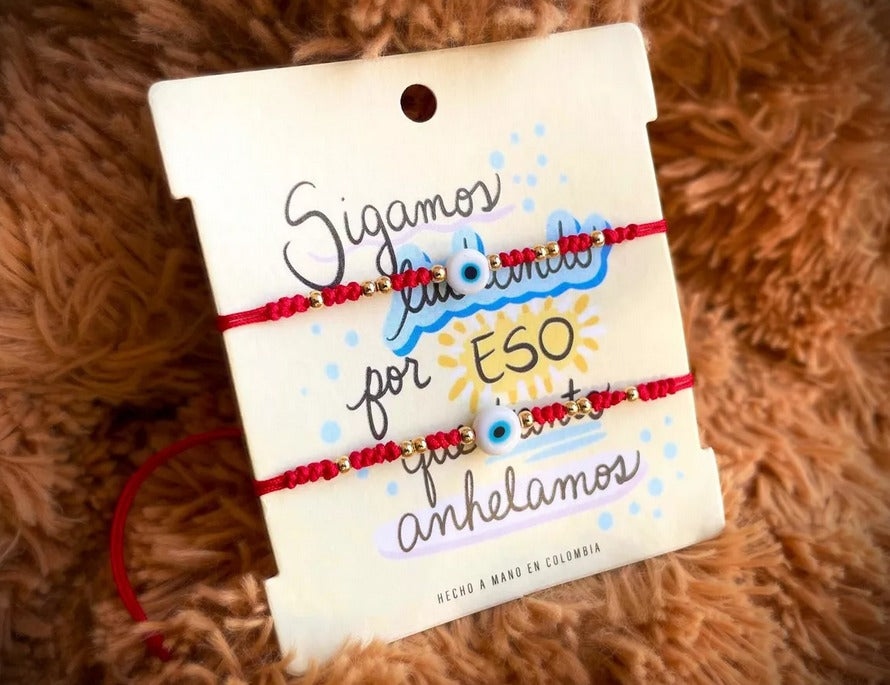 Sigamos
luchando
por ESO
que tanto
anhelamos
HECHO A MANO EN COLOMBIA